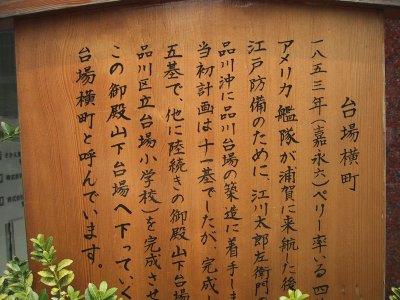 台場横町
一八五三年(嘉永六)ペリー率いる四
アメリカ艦隊が浦賀に来航した後
江戸防備のために、江川太郎左衛門
品川沖に品川台場の築造に着手し
当初計画は十一基でしたが、完成し
五基で、他に陸続きの御殿山下台場
品川区立台場小学校)を完成させ
この御殿山下台場へ下って、く
台場横町と呼んでいます。